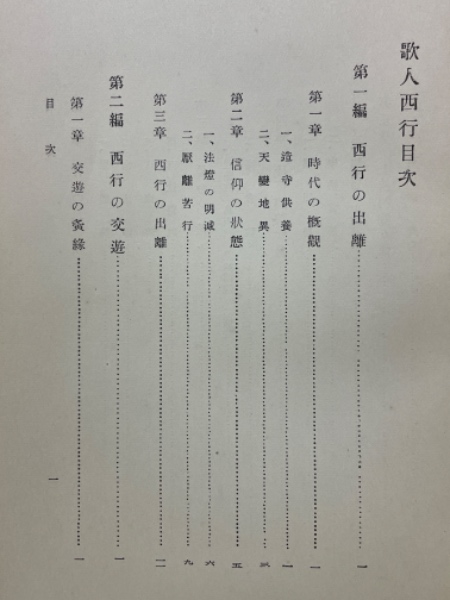 歌人西行目次
第一編 西行の出離……一
第一章 時代の概觀……一
一、造寺供養……一
二、天變地異……三
第二章 信仰の狀態……五
一、法燈の明滅……六
二、厭離苦行……九
第三章 西行の出離……一一
第二編 西行の交遊……一
第一章 交遊の夤緣……一
目次
一